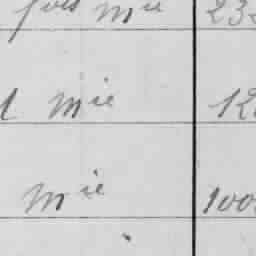 fois mie 232
mie 12
mie 100